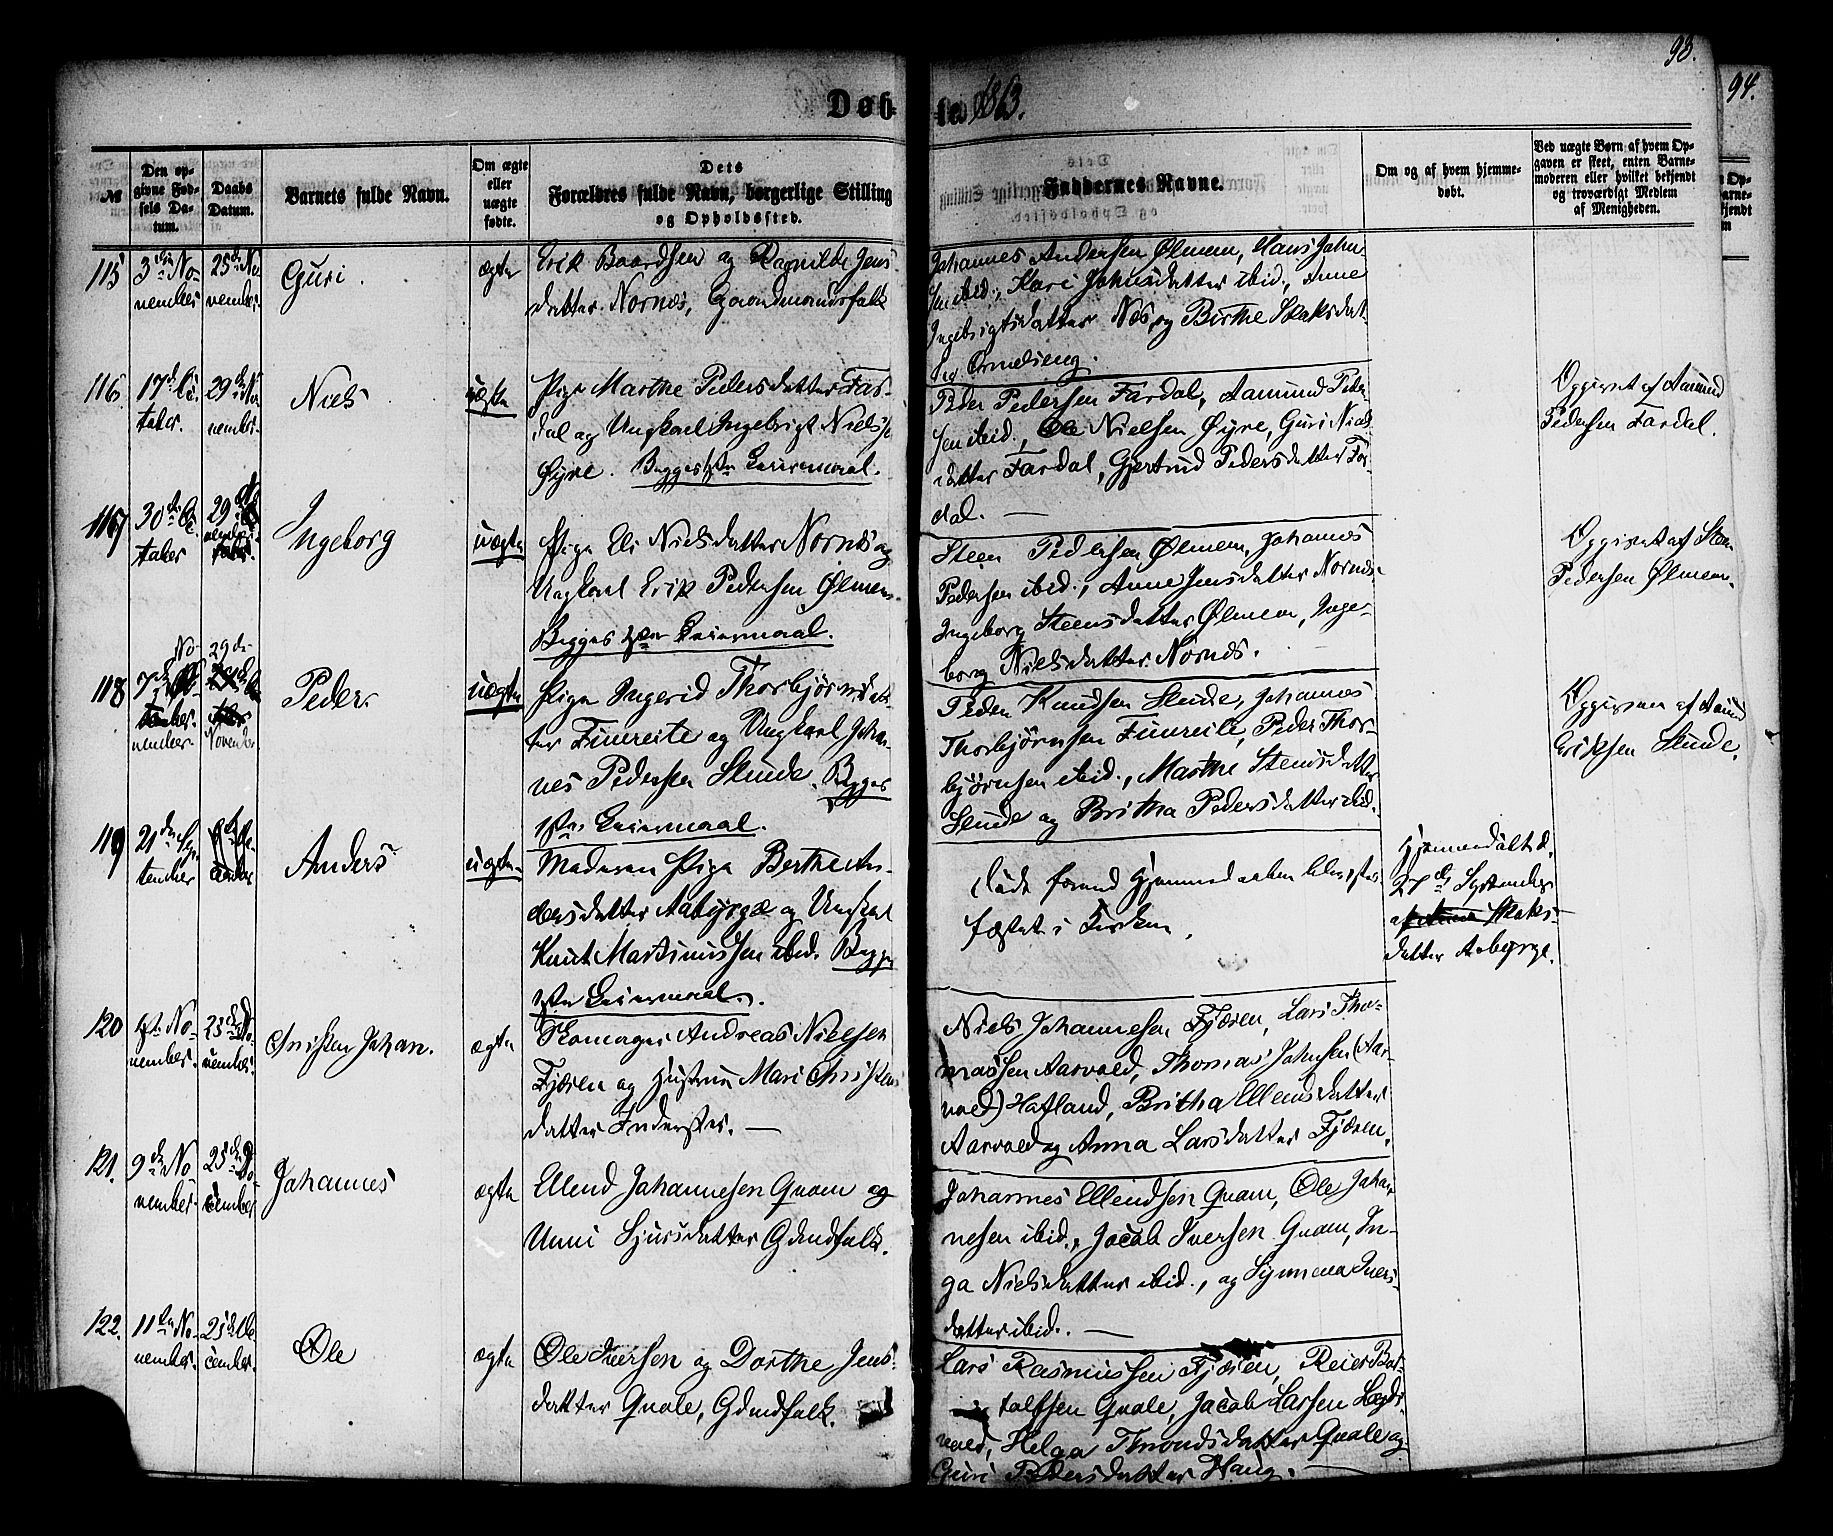 93.
94.
Døb-
te 1863.
№
Den op-
givne Fød-
sels Da-
tum.
Daabs
Datum.
Barnets fulde Navn.
Om ægte
eller
uægte
fødte.
Dets
Forældres fulde Navn, borgerlige Stilling
og Opholdssted.
Faddernes Navne.
Om og af hvem hjemme-
døbt.
Ved uægte Børn af hvem Op-
gaven er skeet, enten Barne-
moderen eller hvilket bekjendt
og troværdigt Medlem
af Menigheden.
115
3die No-
vember
25de No
vember
Guri.
ægte
Erik Baardsen og Ragnilde Jens-
datter Nornæs, Gaardmandsfolk
Johannes Andersen Ølmem, Hans John-
sen ibid., Kari Johnsdatter ibid., Anne
Ingebrigtsdatter Næs, og Birthe Staksdat-
ter Ormelseng.
116.
17de Oc-
tober.
29de No-
vember.
Niels
uægte
Pige Marthe Pedersdatter Far-
dal og Ungkarl Ingebrigt Nielsen
Øyre. Begges 1ste Leiermaal.
Peder Pedersen Fardal, Aamund Peder-
sen ibid., Ole Nielsen Øyre, Guri Niels-
datter Fardal, Gjertrud Pedersdatter Far-
dal. —
Opgivet af Aamund
Pedersen Fardal.
117
30te Oc-
tober
29de No
vember
Ingeborg
uægte
Pige Eli Nielsdatter Nornæs og
Ungkarl Erik Pedersen Ølmem.
Begges 1ste Leiermaal.
Steen Pedersen Ølmem, Johannes
Pedersen ibid., Anne Jensdatter Nornæs,
Ingeborg Steensdatter Ølmem, Inge-
borg Nielsdatter Nornæs.
Opgivet af Steen
Pedersen Ølmem.
118
7de No-
vember
29de
November
Peder
uægte
Pige Ingerid Thorbjørnsdat-
ter Fimreite og Ungkarl Johan-
nes Pedersen Slinde. Begges
1ste Leiermaal.
Peder Knudsen Slinde, Johannes
Thorbjørnsen Fimreite, Peder Thor-
bjørnsen ibid., Marthe Steensdatter
Slinde og Britha Pedersdatter ibid.
Opgiven af Aamund
Eriksen Slinde.
119
21de Sep-
tember
Anders
uægte.
Moderen Pige Berthe An-
dersdatter Aabyrge og Ungkarl
Knut Martinussen ibid. Begges
1ste Leiermaal.
Døde forend Hjemmedaaben blev stad-
fæstet i Kirken.
Hjemmedøbt d.
27de September
af Staks-
datter Aabyrge.
120
1ste No-
vember.
25de No-
vember.
Cristen Johan.
ægte
Skomager Andreas Nielsen
Fjæren og Hustrue Mari Christens
datter —
Niels Johannesen Fjæren, Lars Tho-
massen Aarvold, Thomas Johnsen (Aar-
vold) Hafland, Britha Ellendsdatter
Aarvold og Anna Larsdatter Fjæren.
121.
9de No
vember
25de De-
cember
Johannes
ægte
Ellend Johannesen Qvam og
Unni Sjursdatter Gdmdfolk.
Johannes Ellendsen Qvam, Ole Johan
nesen ibid., Jacob Iversen Qvam, In-
ga Nielsdatter ibid., og Synneva Ivers-
datter ibid. —
122.
11te No-
vember.
25de De-
cember.
Ole
ægte
Ole Iversen og Dorthe Jens-
datter Qvale, Gdmdfolk.
Lars Rasmussen Fjæren, Reier Bot-
tolfsen Qvale, Jacob Larsen Lægds-
vold, Helga Throndsdatter Qvale og
Guri Pedersdatter Haug. —